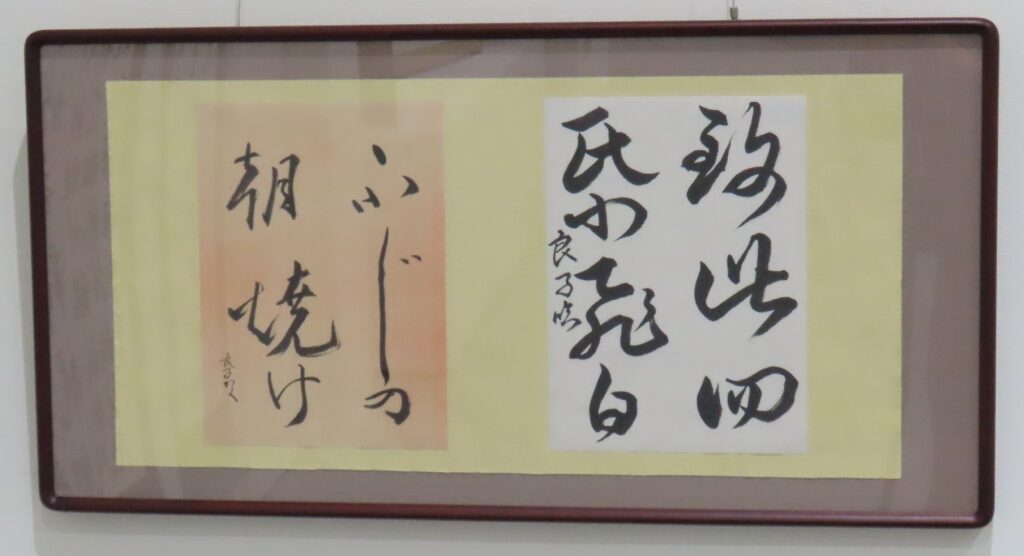 致此四
氏小飛白
良子臨
ふじの
朝焼け
良子かく